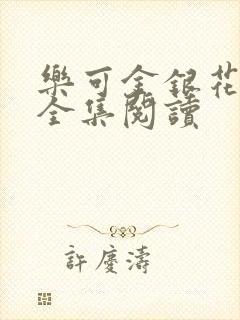 樂可金銀花
全集閱讀
許慶濤